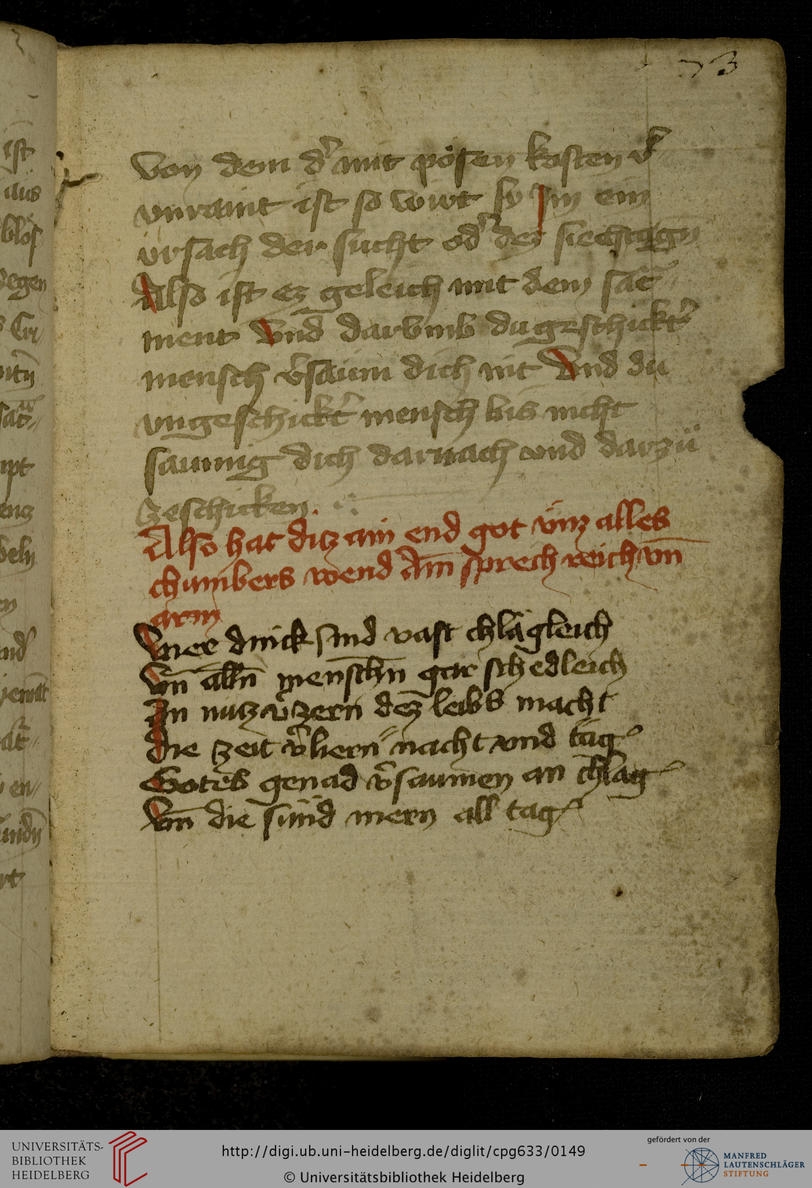 73
von dem d' mit pösen kosten v'
vnraint ist so wirt sy Im ein
vrsach der sucht od' der siechtag
Also ist ez geleich mit dem sac
ment vnd darvmb du geschickt'
mensch v'saum dich nit vnd du
vngeschickt' mensch bis nicht
saumig dich darnach vnd darzů
zeschicken
Also hat ditz ain end got vnz alles
chumbers wend dm sprech reich vn̄
arm
Vier dinck sind vast chlägleich
Vn̄ alln̄ menschn̄ gar schedleich
In nutz v'zern dez leibs macht
Die zeit v'liern nacht vnd tag
Gotes genad v'saumen an chlag
Vn̄ die sünd mern all tag
ist
aus
blos
egen
ment
UNIVERSITÄTS-
BIBLIOTHEK
HEIDELBERG
http://digi.ub.uni-heidelberg.de/diglit/cpg633/0149
© Universitätsbibliothek Heidelberg
gefördert von der
MANFRED
LAUTENSCHLÄGER
STIFTUNG